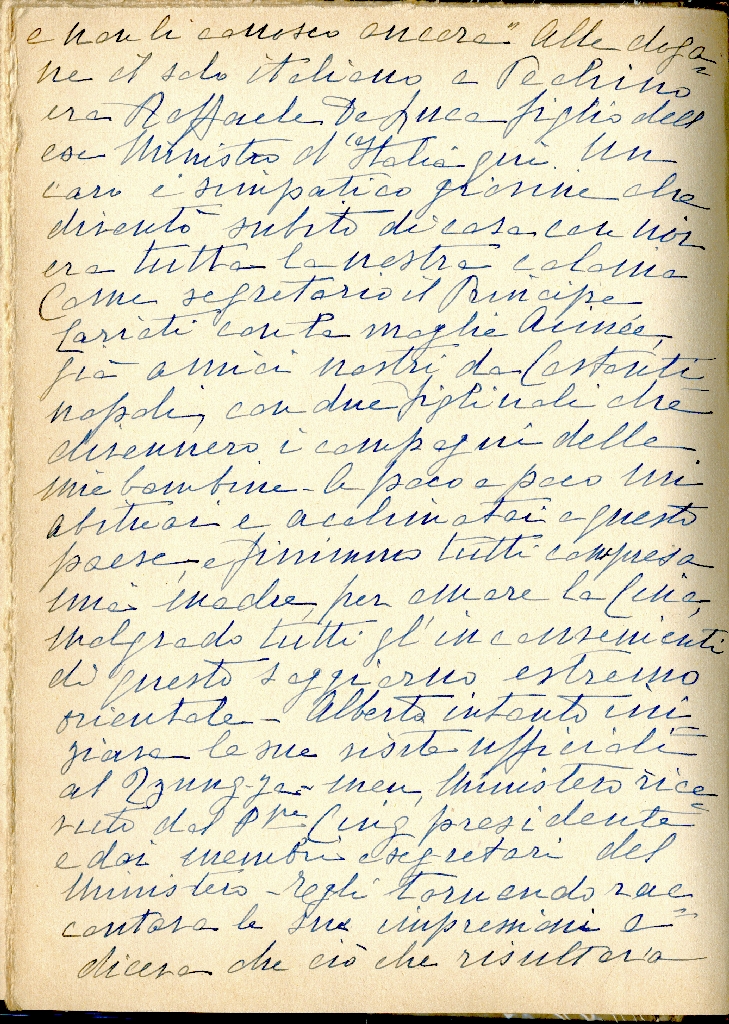 e non li conosco ancora" Alle doga=
ne il solo italiano a Pechino
era Raffaele De Luca figlio dell
ex Ministro d'Italia qui. Un
caro e simpatico giovine che
diventò subito di casa con noi
era tutta la nostra colonia
Come segretario il Principe
Cariati con la moglie Aimée,
già amici nostri da Costanti
nopoli, con due figliuoli che
divennero i compagni delle
mie bambine - A poco a poco mi
abituai e acclimatai a questo
paese, e finimmo tutti compresa
mia madre, per amare la Cina,
malgrado tutti gl'inconvenienti
di questo soggiorno estremo
orientale - Alberto intanto ini=
ziava le sue visite ufficiali
al Tzung-ya-men, Ministero rice=
vuto dal P.pe Cing presidente
e dai membri e segretari del
Ministero - Egli tornando rac
contava le sue impressioni e=
diceva che ciò che risultava